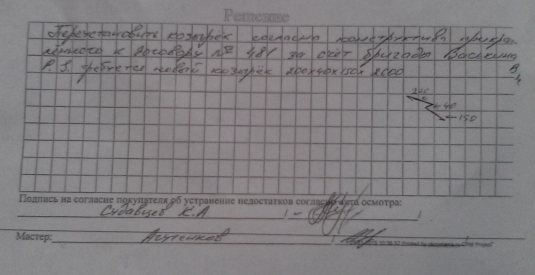 Решение
Переустановить козырёк согласно конструктива прикреп
ленного к договору № 481 за счёт бригады Васькина В.
P.S. требуется новый козырёк 200х40х150х2600
200
40
150
Подпись на согласие покупателя об устранение недостатков согласно акта осмотра:
Судавцев К.А
Мастер: